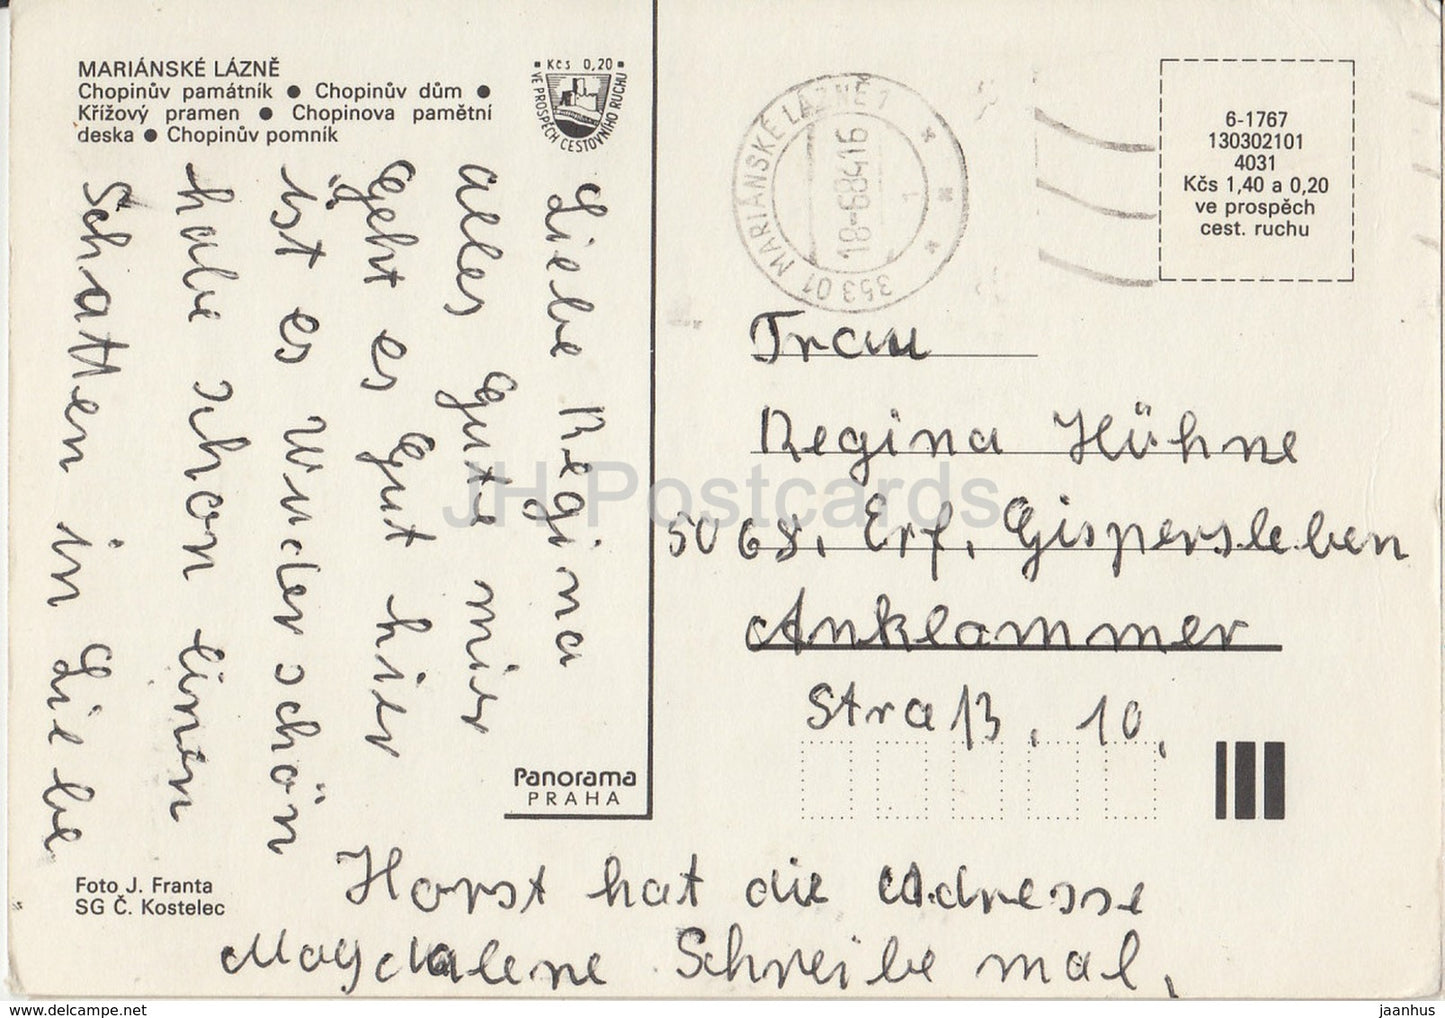 MARIÁNSKÉ LÁZNĚ
Chopinův památník ● Chopinův dům ●
Křížový pramen ● Chopinova pamětní
deska ● Chopinův pomník
Kčs 0,20
VE PROSPĚCH CESTOVNÍHO RUCHU
353 01 MARIÁNSKÉ LÁZNĚ 1
18-6 84 16
1
6-1767
130302101
4031
Kčs 1,40 a 0,20
ve prospěch
cest. ruchu
Liebe Regina
Alles Gute mir
Geht es Gut hier
ist es Wuderschön
habe schon einen
Schatten in Liebe
Horst hat die Adresse
Magdalene Schreibe mal,
Frau
Regina Hühne
5068, Erf, Gispersleben
Anklammer
Straß, 10,
Panorama
PRAHA
Foto J. Franta
SG Č. Kostelec
JH Postcards
www.delcampe.net
jaanhus